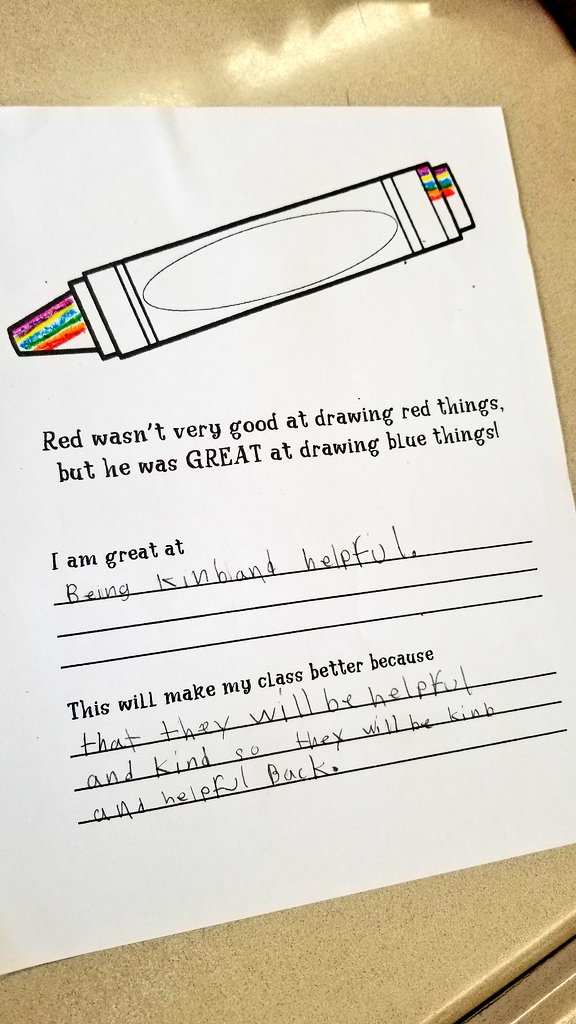 Red wasn't very good at drawing red things,
but he was GREAT at drawing blue things!
I am great at
Being kinb and helpful.
This will make my class better because
that they will be helpful
and kind so they will be kinb
and helpful Back.